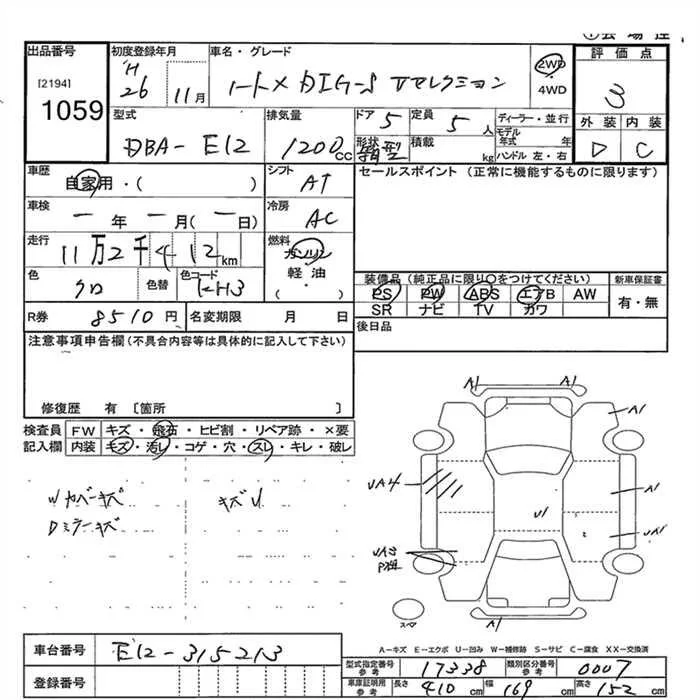 出品番号
[2194]
1059
初度登録年月
H
26 11月
車名・グレード
ノート X DIG-S Vセレクション
2WD
4WD
評価点
3
外装 内装
D C
型式
DBA-E12
排気量
1200 cc
ドア 5
定員 5 人
形状 箱型
積載 kg
ディーラー・並行
モデル年式 年
ハンドル 左・右
車歴
自家用・( )
シフト
AT
セールスポイント (正常に機能するものに限ります)
車検
一年 一月(一日)
冷房
AC
走行
11万2千412km
燃料
ガソリン
軽油
・( )
色
クロ
色替
色コード
KH3
装備品 (純正品に限り○をつけてください)
新車保証書
PS PW ABS エアB AW
SR ナビ TV カワ
有・無
R券 8510円
名変期限 月 日
後日品
注意事項申告欄 (不具合内容等は具体的に記入して下さい)
修復歴 有 [箇所 ]
検査員 FW キズ・飛石・ヒビ割・リペア跡・×要
記入欄 内装 キズ・汚レ・コゲ・穴・スレ・キレ・破レ
キズU
Dミラーキズ
A1 A1
A1
UA4
U1
A1
UA1
A1
スペア
A-キズ E-エクボ U-凹み W-補修跡 S-サビ C-腐食 XX-交換済
車台番号 E12-315213
登録番号
型式指定番号 参考 17338
類別区分番号 参考 0007
車庫証明用 参考 長さ 410 cm 幅 169 cm 高さ 152 cm